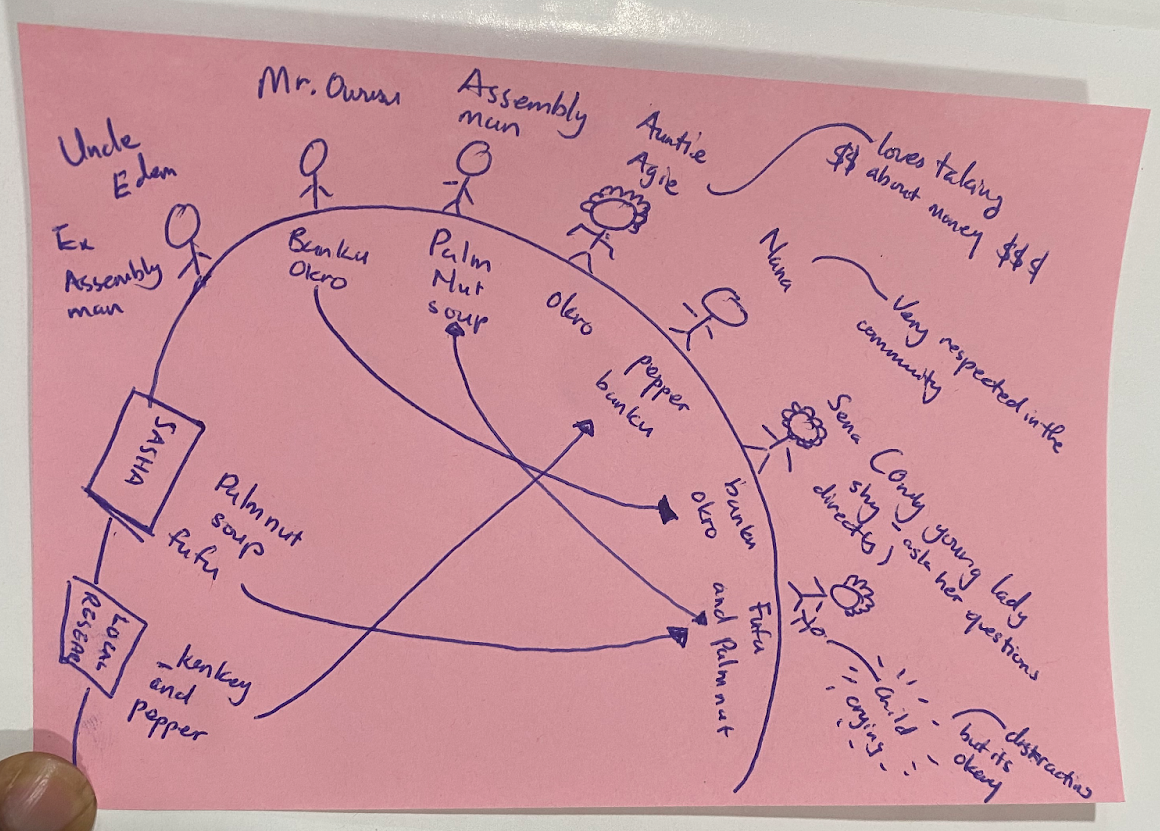 Mr. Owusu
Assembly
man
Auntie
Agie
loves taking
$$ about money $$$
Uncle
Edem
Ex
Assembly
man
Nana
Very respected in the
community
Banku
Okro
Palm
Nut
soup
Okro
pepper
banku
Sena
young lady
shy - ask her questions
directly
banku
okro
SASHA
Palmnut
soup
fufu
Fufu
and Palmnut
LOCAL
- kenkey
and
pepper
Child
crying
distracting
but its
okay